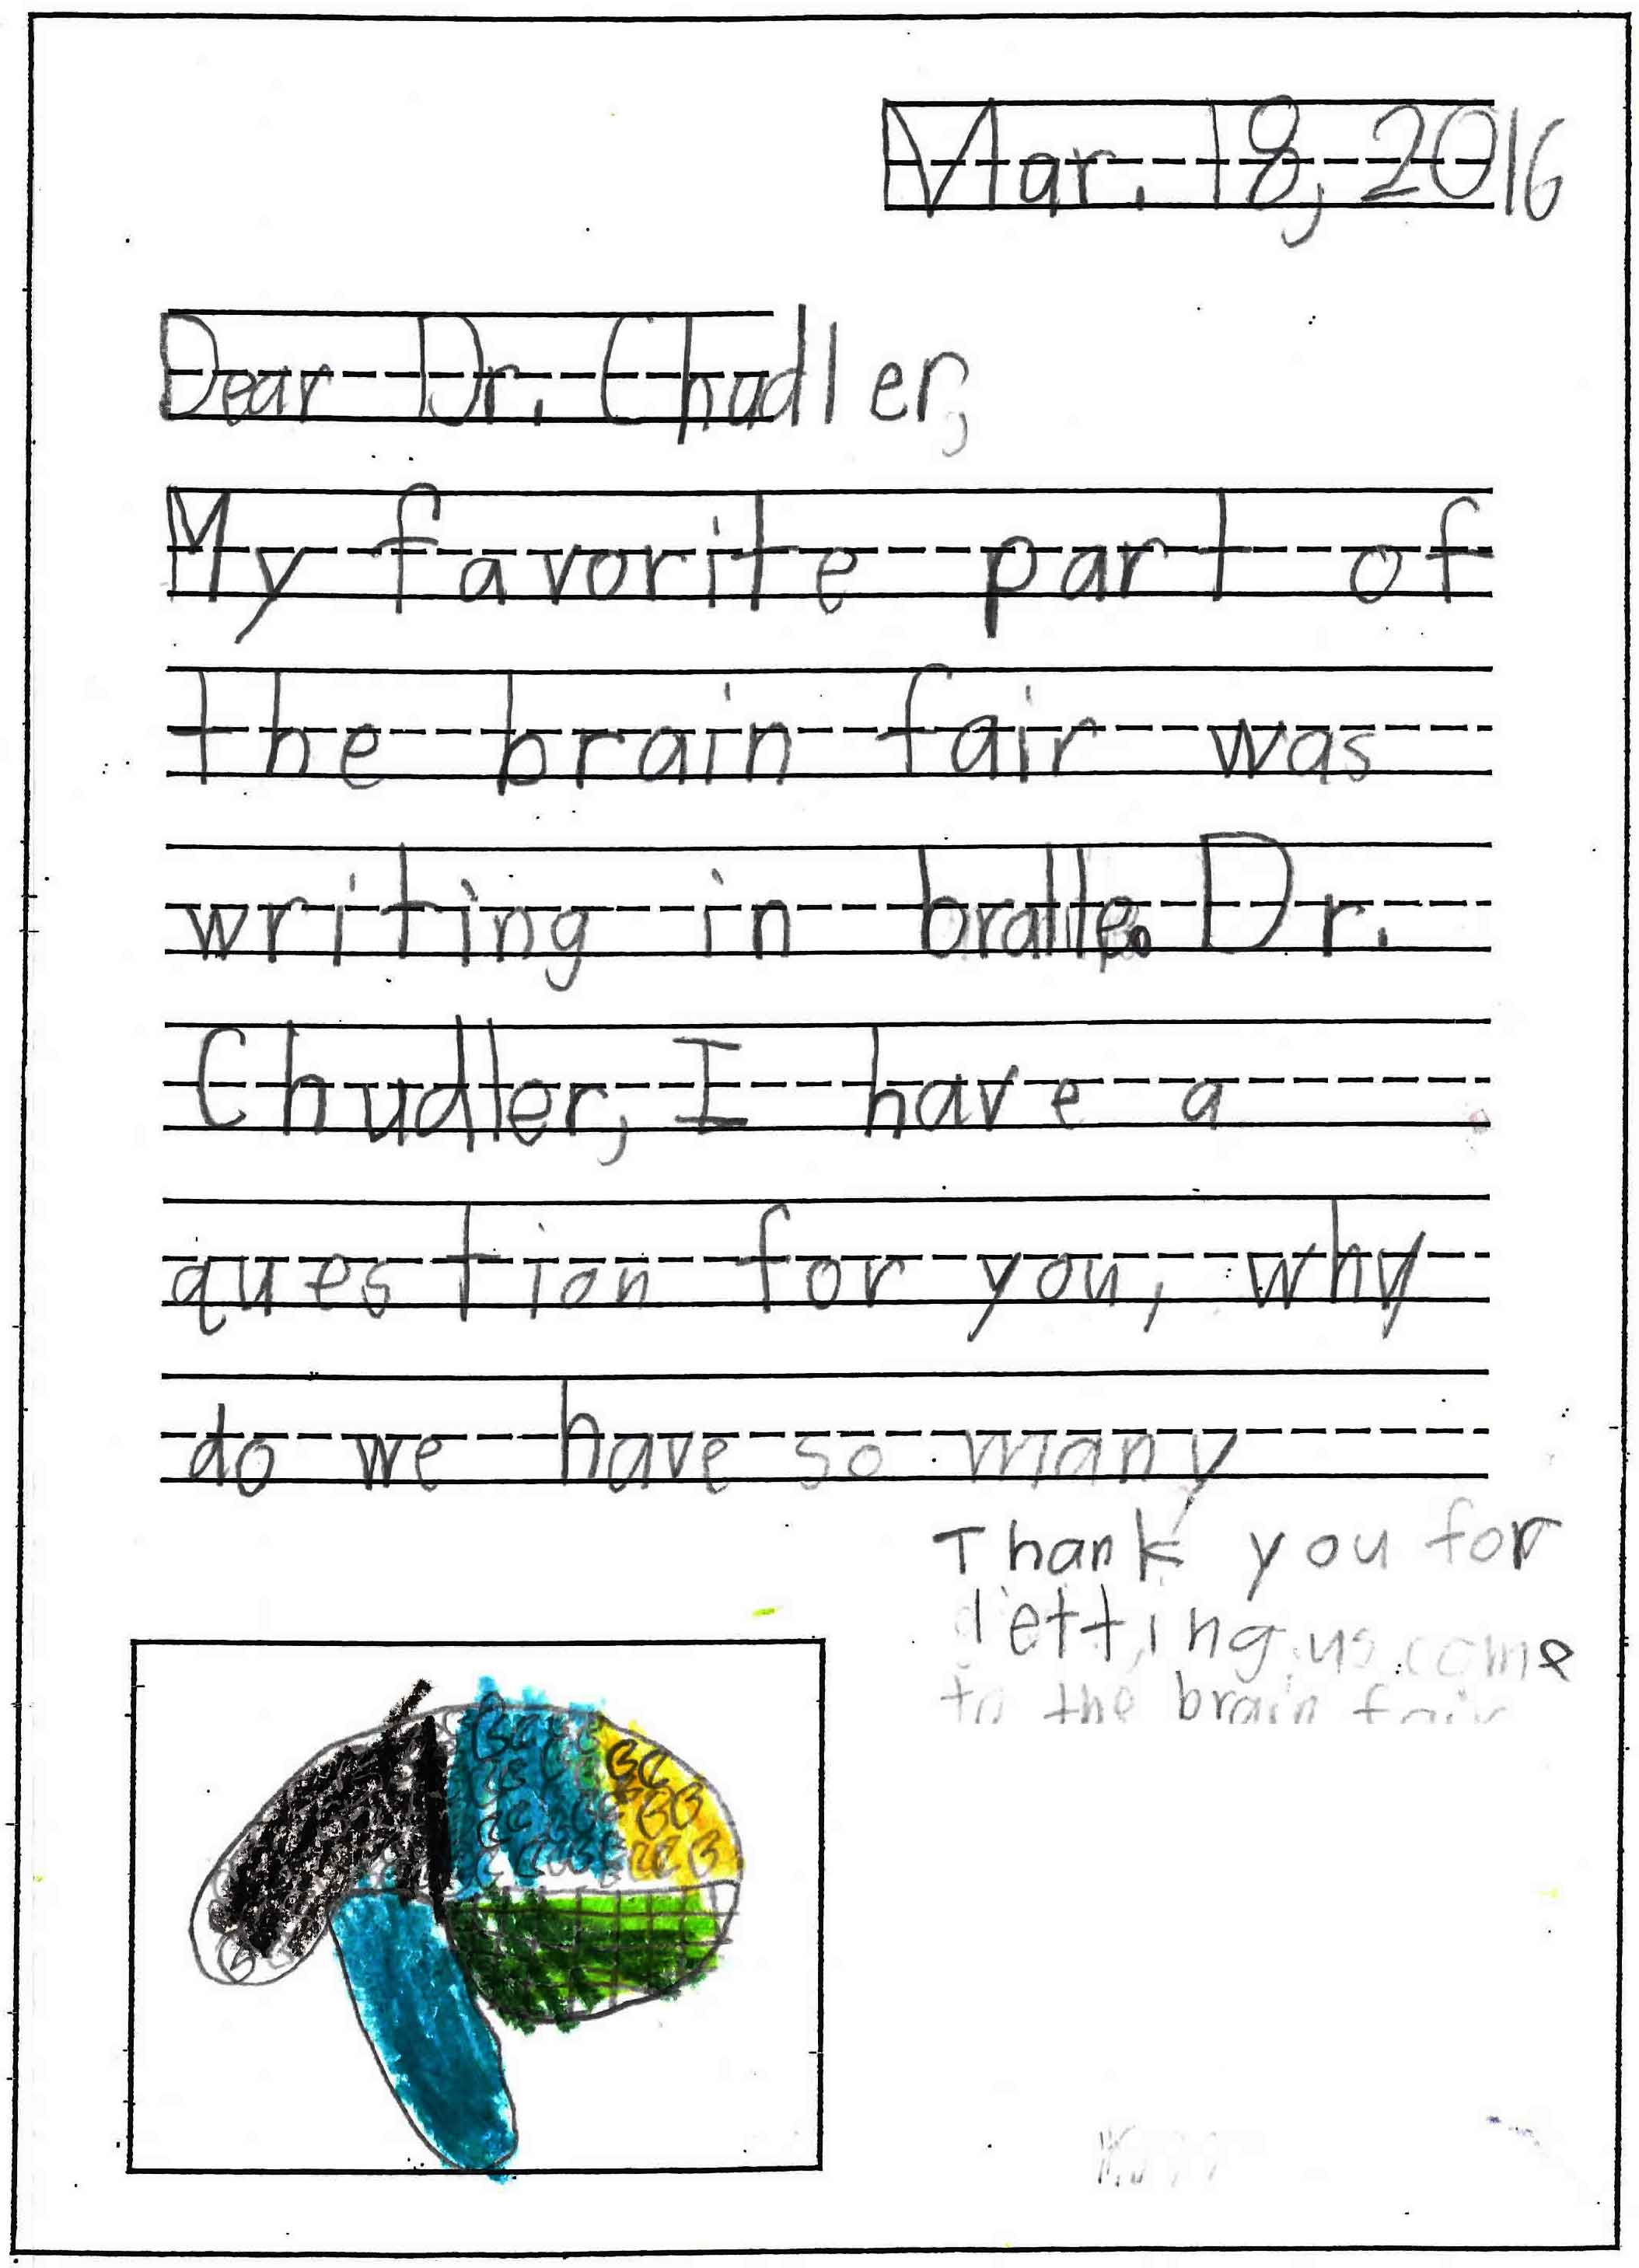 Mar. 18, 2016
Dear Dr. Chudler,
My favorite part of
the brain fair was
writing in bralle. Dr.
Chudler, I have a
question for you, why
do we have so many
Thank you for
letting us come
to the brain fair